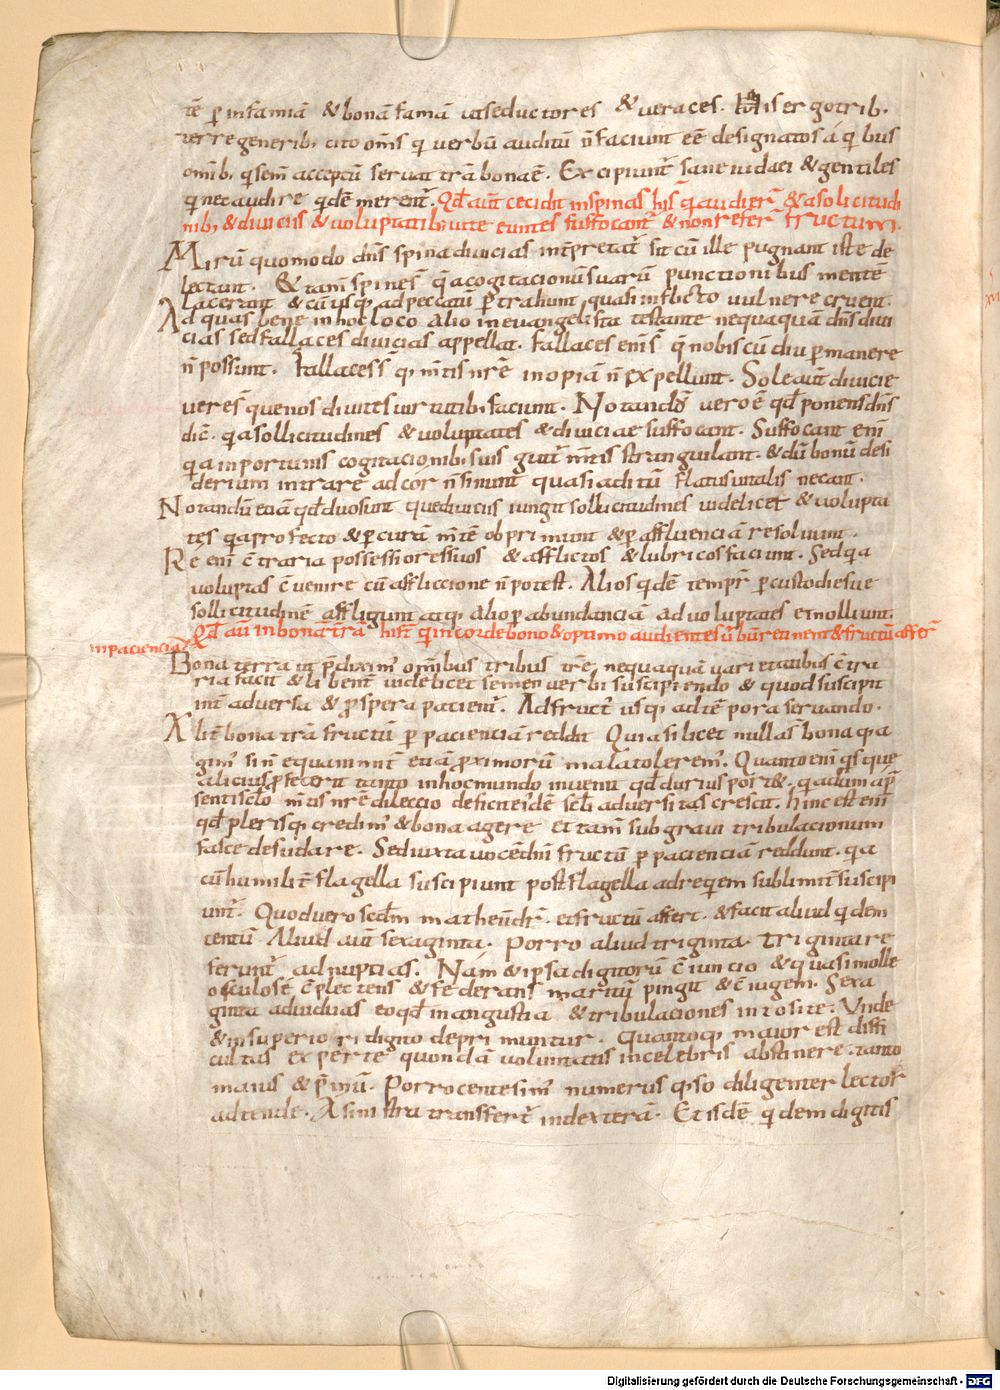 tē ꝑ infamiā & bonā famā ut seductores & veraces. His ergo trib;
terre generib; cito om̄s q̇ verbū auditū n̄ faciunt eē designatos á quibus
omib; q̇ sem̄ acceptū servat trā bona ē. Excipiunt᷑ sane iudaei & gentiles
q̇ nec audire qdē merent᷑. Qd̄ aut̄ cecidit in spinas his̄ q̇ audier̄ & a solicitudi
nib; & diviciis & voluptatib; vite euntes suffocant᷑ & non refer̄ fructum.
Mirū quomodo dn̄s spina divicias int̄pretat᷑ sit cū ille pugnant iste de
lectant. & tam̄ spine s̄ q̇a cogitacionū suarū punctionibus mente
lacerant & cū usq; ad peccatū ꝑtrahunt quasi inflicto vulnere cruent.
Ad quas bene in hoc loco alio in evangelista testante nequaquā dn̄s divi
cias sed fallaces divicias appellat. fallaces enī s̄ q̄ nobiscū diu ꝑmanere
n̄ possunt. Fallaces s̄ q̇ m̄tis nr̄e inopiā n̄ expellunt. Sole aut̄ divicie
vere s̄ que nos divites virtutib; faciunt. Notandū vero ē qd̄ ponens dn̄s
dic̄. q̇a sollicitudines & voluptates & diviciae suffocant. Suffocant enī
q̇a inportunis cogitacionib; suis gutt᷑ m̄tis strangulant. & dū bonū desi
derium intrare ad cor n̄ sinunt quasi aditū flatus vitalis necant.
Notandū etiā qd̄ duo sunt que diviciis iungit sollicitudines videlicet & volupta
tes q̇a profecto & ꝑ curā m̄tē obprimunt & ꝑ affluenciā resolvunt.
Re enī c̄traria possessiores suos & afflictos & lubricos faciunt. Sed q̇a
voluptas c̄venire cū affliccione n̄ potest. Alio s̄ q̇dē tempr̄ ꝑ custodie sue
sollicitudinē affligunt atq; alio ꝑ abundanciā ad voluptates emolliunt.
Qd̄ aut̄ in bonā trā his̄t q̇ in corde bono & optimo audientes ūbū retinent & fructū affer̄
in paciencia
Bona terra ut p̄diximꝰ omībus tribus tr̄e nequaquā varietatibus c̄tra
ria facit & libent᷑ videlicet semen verbi suscipiendo & quod suscipit
int᷑ adversa & prospera pacient᷑. Ad fruct᷑ usq; ad tēpora servando.
Alit᷑ bona trā fructū ꝑ pacienciā reddit Quia silicet nulla s̄ bona q̇ a
gimꝰ si n̄ equanimit᷑ etiā proximorū mala toleremꝰ. Quanto enī q̇s que
alicius profecerit tanto in hoc mundo invenit qd̄ durius portet. q̇a dum a p̄
senti sc̄lo m̄tis nr̄e dileccio deficit eidē sc̄li adversitas crescit. hinc est enī
qd̄ plerisq; credimꝰ & bona agere et tam̄ sub gravi tribulacionum
fasce desudare. Sed iuxta vocē dn̄i fructū ꝑ pacienciā reddunt. q̇a
cū humilit᷑ flagella suscipiunt post flagella ad requiem sublimit᷑ suscipi
unt᷑. Quod vero scdm̄ matheū dr̄. et fructū affert. & facit aliud q̇dem
centū Aliud aut̄ sexaginta. Porro aliud triginta. Triginta re
ferunt᷑ ad nuptias. Nam & ipsa digitorū c̄iunctio & quasi molle
osculo se c̄plectens & federans maritū pingit & c̄iugem. Sexa
ginta ad viduas eo qd̄ in angustia & tribulaciones int posite. Unde
& in superiori digito deprimuntur. Quantoq; maior est diffi
cultas experte quondā voluntatis inlecebris abstinere. tanto
maius & p̄miū. Porro centesimꝰ numerus q̇so diligenter lector
adtende. A sinistra transfert᷑ in dexterā. Et isdē q̇dem digitis
Digitalisierung gefördert durch die Deutsche Forschungsgemeinschaft - DFG